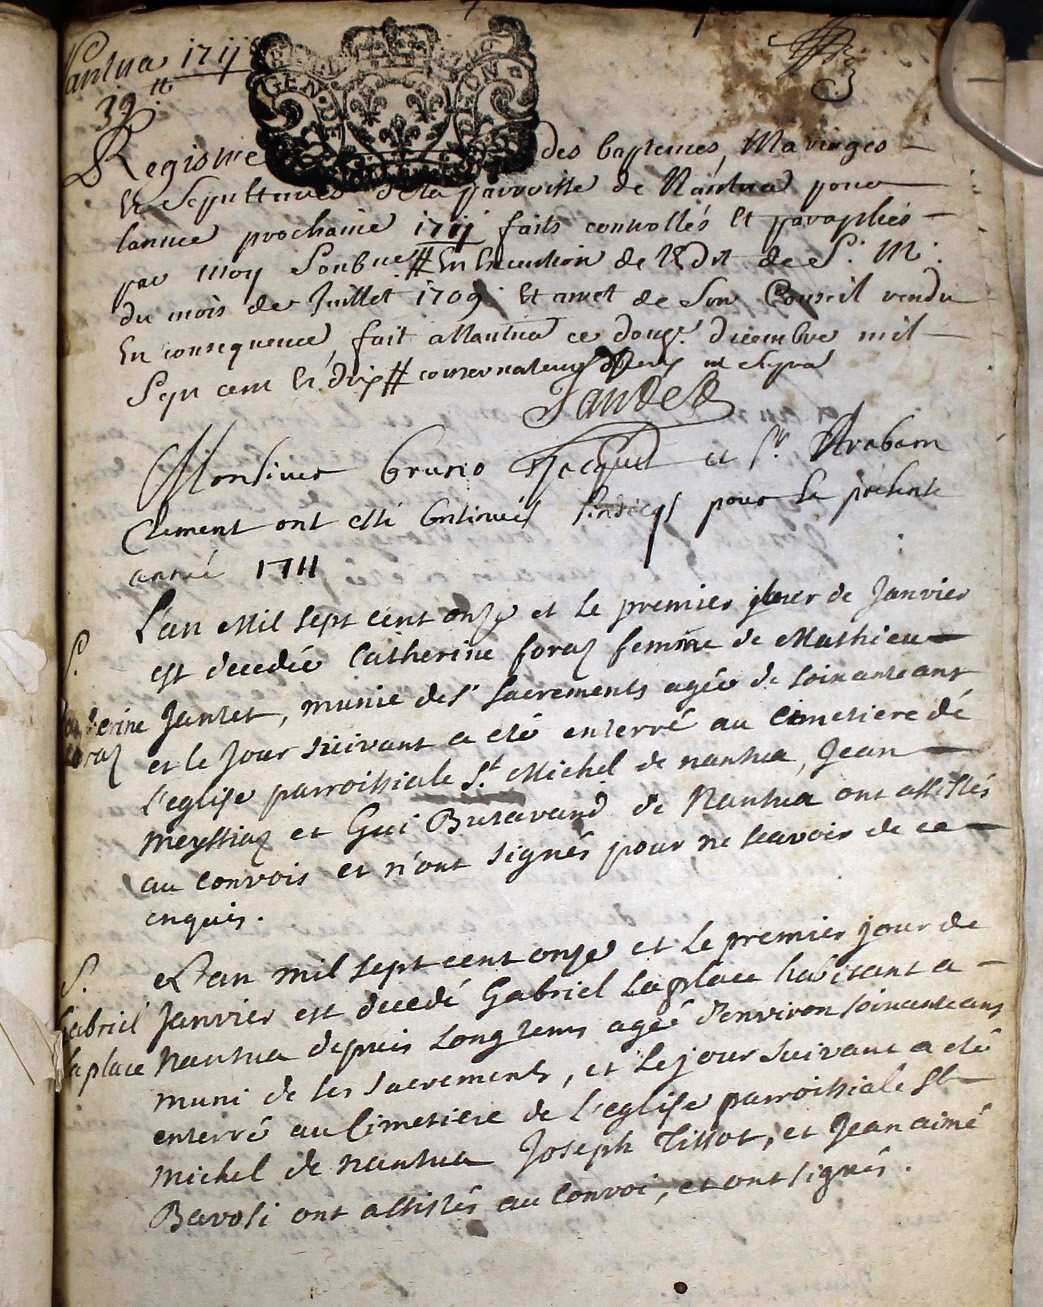 Nantua 1711
39 tt
GEN · DE LION
Registre des baptemes, Mariages
Et Sepultures de la parroisse de Nantua pour
lannee prochaine 1711 faits controllés Et paraphés
par moy Soubne# En Execution de l'Edit de S. M.
du mois de Juillet 1709 Et arret de Son Conseil rendu
En consequence, fait a Nantua ce douze decembre mil
Sept cent Et dix # conservateur
Jantet
Monsieur bruno Jacquet et Sr. Arabam
Clement ont esté Continués sindicqs pour la présente
année 1711
L'an Mil sept cent onze et le premier jour de Janvier
S. est decedée Catherine foraz femme de Mathieu
Catherine Jantet, munie des Sts sacrements agée de soixante ans
foraz et le jour suivant a eté enterré au Cimetiere dé
l'eglise parroissiale St. Michel de nantua, Jean
Meyssiaz et Gui Butavand de Nantua ont assistés
au convois et n'ont signés pour ne scavoir de ce
enquis.
S. L'an mil sept cent onze et le premier jour de
Gabriel Janvier est decedé Gabriel Laplace habitant a
laplace Nantua depuis longtems agé d'environ soixante ans
muni de ses sacrements, et le jour suivant a eté
enterré au Cimetiere de l'eglise parroissiale St
Michel de nantua Joseph Tissot, et Jean aimé
Bavosi ont assistés au convoi, et ont signés.